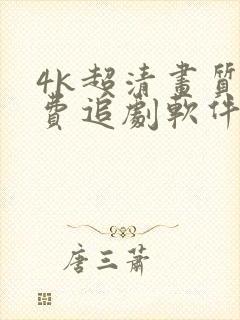 4k超清畫質
費追劇軟件
唐三蕭